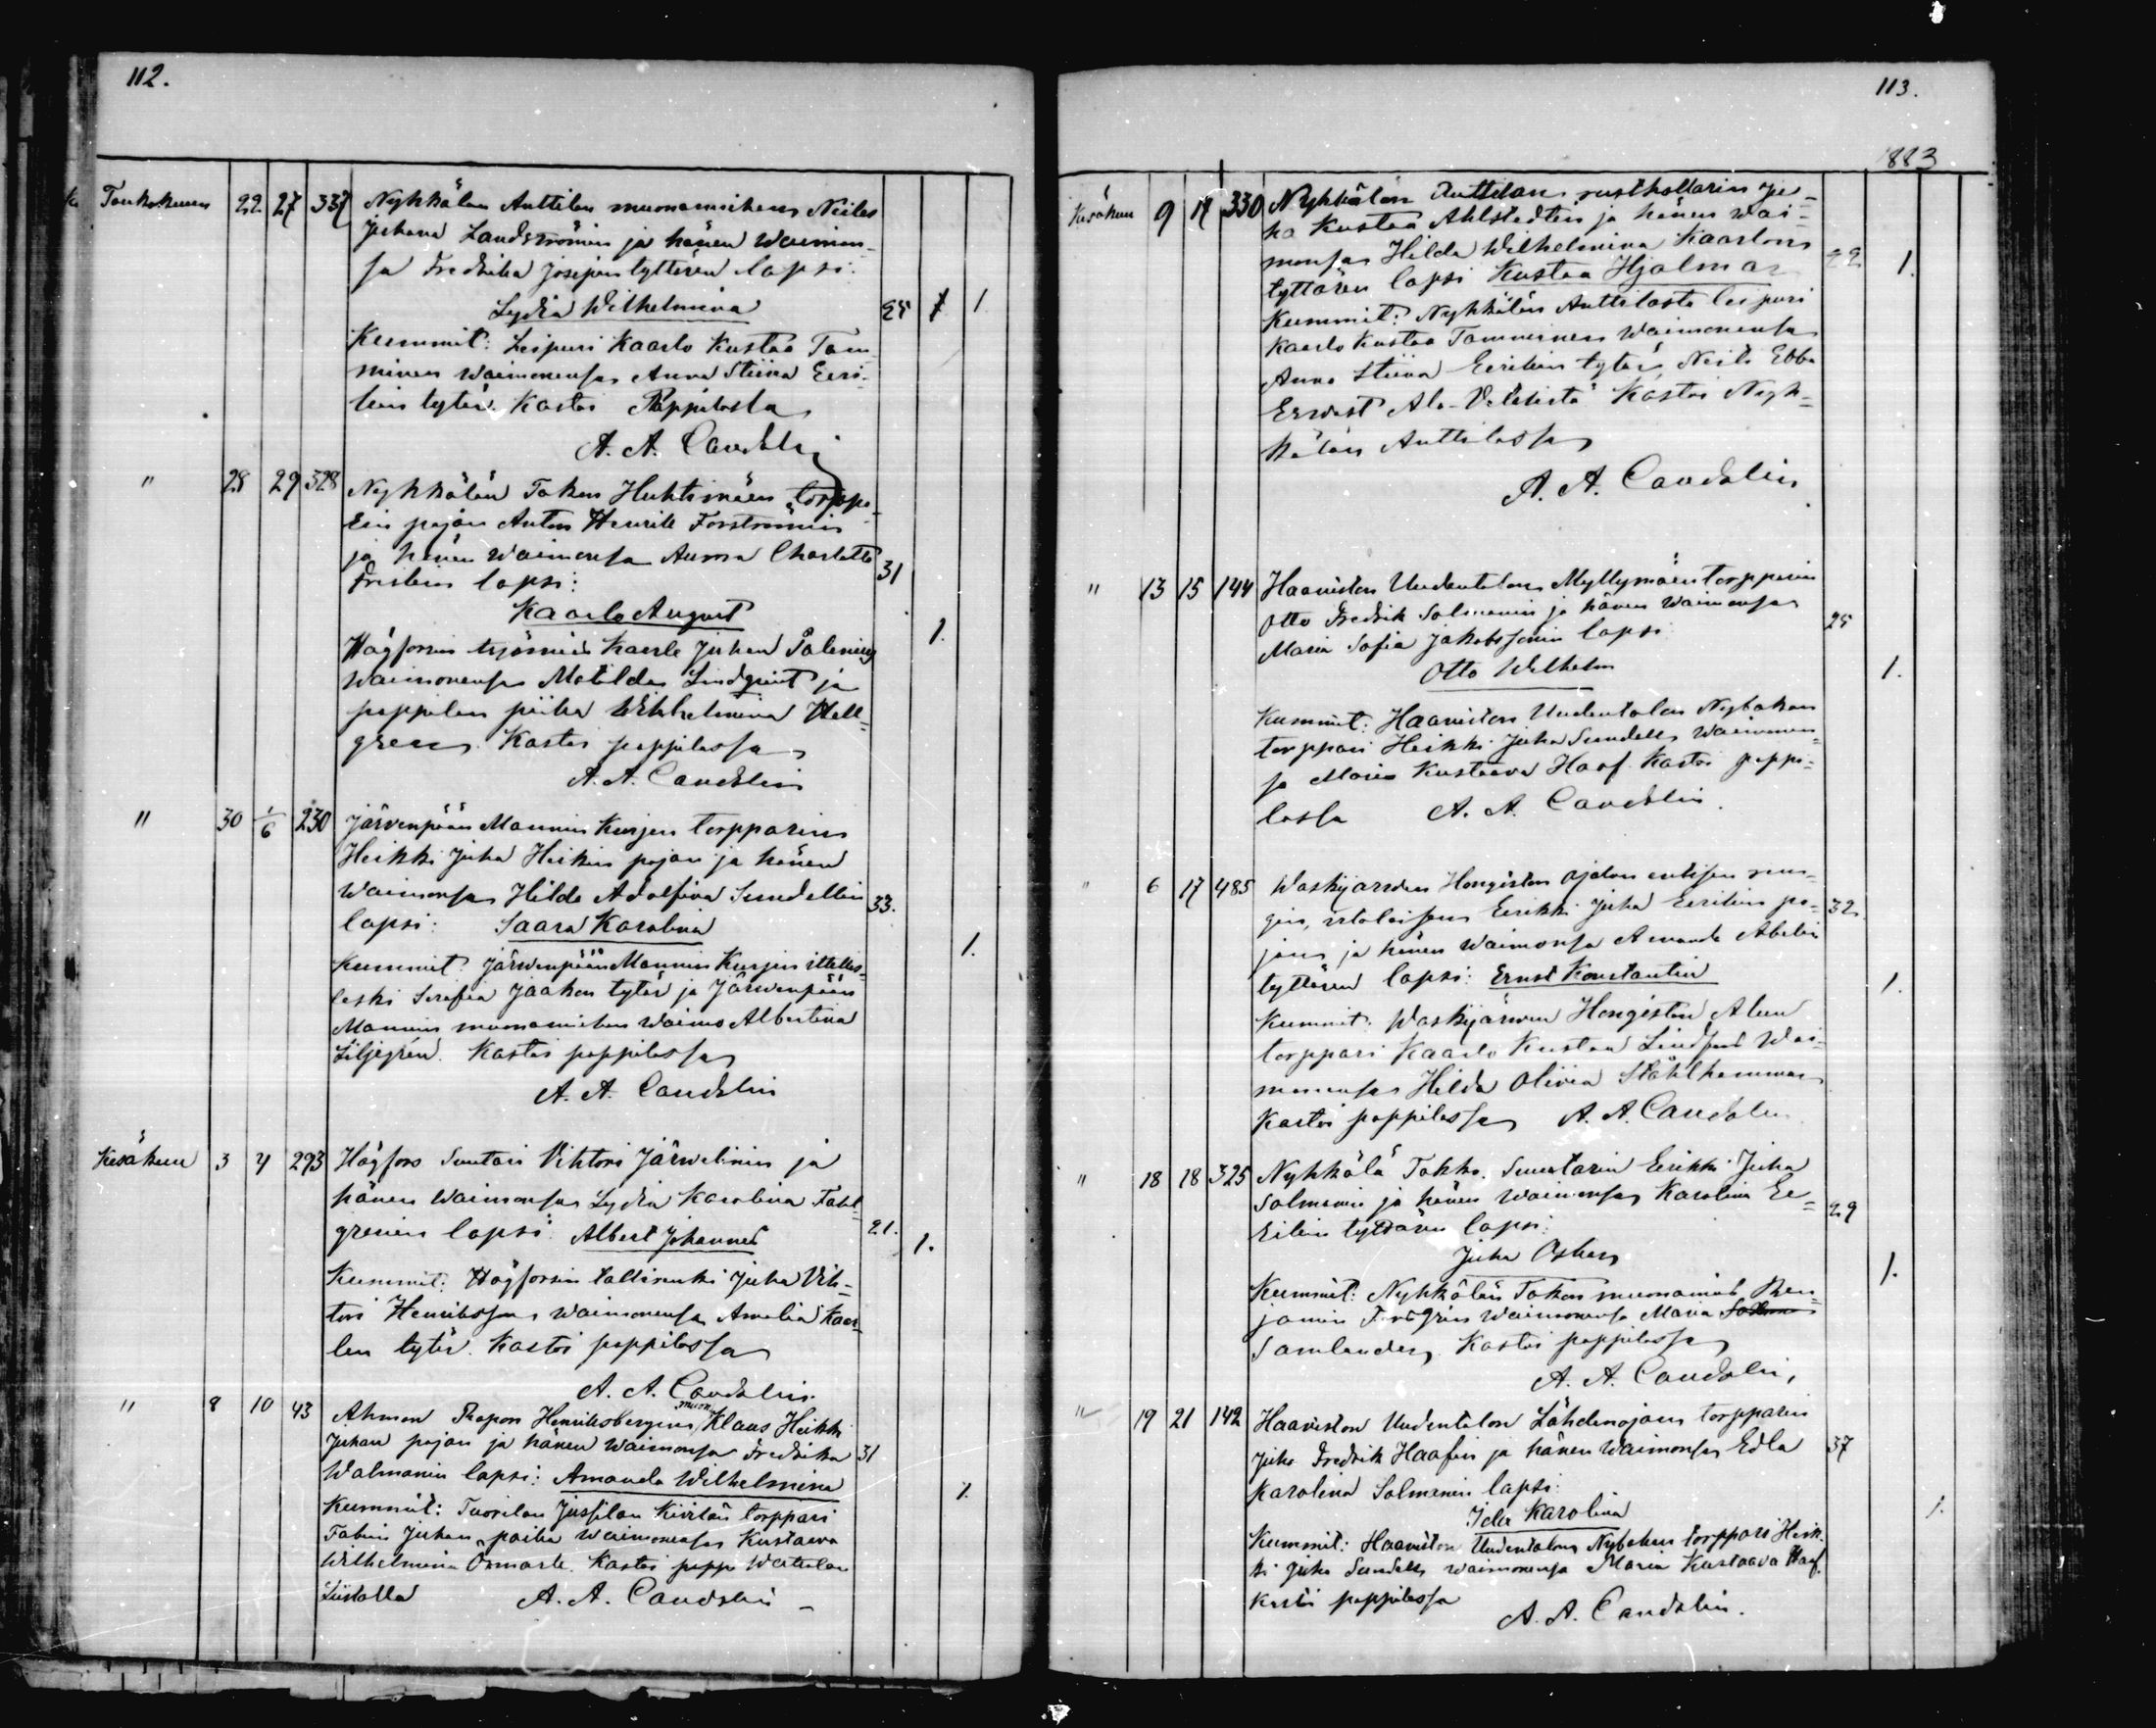 112.
Toukokuun 22 27 337 Nyhkälän Anttilan muonamiehen Niilas
Juhana Landströmin ja hänen waimon-
sa Fredrika Josepin tyttären lapsi:
Lydia Wilhelmina 25 1 1
Kummit: Leipuri Kaarlo Kustaa Tam-
minen waimonensa Anna Stiina Eeri-
kin tytär. Kastoi Pappilassa
A. A. Candelin
" 28 29 328 Nyhkälän Takon Huhtimäen torppa-
rin pojan Anton Henrik Forströmin
ja hänen waimonsa Anna Charlotta 31
lapsi:
Kaarlo August
Högforsin Kaarle Juhan 1.
waimonensa Matilda Lindqvist ja
pappilan piika Wilhelmina Hell-
gren. Kastoi pappilassa
A. A. Candelin
" 30 1/6 230 Järvenpään Mannin Kurjen torpparin
Heikki Juha Heikin pojan ja hänen
waimonsa Hilda Adolfina Sundellin 33.
lapsi: Saara Karolina
Kummit: Järwenpään Mannin Kurjen ittellis- 1.
leski Serafia Jaakon tytär ja Järwenpään
Mannin muonamiehen waimo Albertina
Liljegrén. Kastoi pappilassa
A. A. Candelin
Kesäkuu 3 4 293 Högfors Suutari Vihtori Järwelinin ja
hänen waimonsa Lydia Karolina Fahl-
grenin lapsi: Albert Johannes 21. 1.
Kummit: Högforsin tallirenki Juha Vih-
tori Henriksson waimonensa Amalia Kaar-
len tytär. Kastoi pappilassa
A. A. Candelin.
" 8 10 43 Ahmon Henriksbergin muon. Klaus Heikki
Juhan pojan ja hänen waimonsa Fredrika 31
Walmanin lapsi: Amanda Wilhelmina
Kummit: Tuorilan Jussilan Kivelän torppari 1.
Juhan poika waimonensa Kustaava
Wilhelmina Kastoi
A. A. Candelin
113.
1883
Kesäkuu 9 17 330 Nyhkälän Anttilan rusthollarin Ju-
ha Kustaa Ahlstedtin ja hänen wai-
monsa Hilda Wilhelmina Kaarlon 22 1.
tyttären lapsi Kustaa Hjalmar
Kummit: Nyhkälän Anttilasta leipuri
Kaarlo Kustaa Tamminen waimonensa
Anna Stiina Eerikin tytär, Neiti Ebba
Kastoi Nyh-
kälän Anttilassa
A. A. Candelin
" 13 15 144 Haaviston Uudentalon Myllymäen torpparin
Otto Fredrik Salmenin ja hänen waimonsa 25
Maria Sofia Jakobssonin lapsi
Otto Wilhelm 1.
Kummit: Haaviston Uudentalon Nybakan
torppari Heikki Juha Sundell, waimonen-
sa Maria Kustaava Haaf. Kastoi pappi-
lassa A. A. Candelin.
" 6 17 485 Waskijärven Hongiston Ojalan entisen ren-
gin, Eerikki Juha Eerikin po- 32
jan, ja hänen waimonsa Amanda Abelin
tyttären lapsi: Ernst Konstantin 1.
Kummit: Waskijärven Hongiston Alun
torppari Kaarlo Kustaa Lindfors Wai-
monensa Hilda Olivia Stålhammar
Kastoi pappilassa A. A. Candelin
" 18 18 325 Nyhkälä Takko. Suutarin Eerikki Juha
Salmenin ja hänen waimonsa Karolina Ee- 29
rikin tyttären lapsi:
Juha Oskar 1.
Kummit: Nyhkälän Takon muonamies Ben-
jamin waimonensa Maria
Samlander, Kastoi pappilassa
A. A. Candelin,
" 19 21 142 Haaviston Uudentalon Lähdenojan torpparin
Juho Fredrik Haafin ja hänen waimonsa Edla 37
Karolina Salmenin lapsi:
Ida Karolina 1.
Kummit: Haaviston Uudentalon Nybakan torppari Heik-
ki Juha Sundell waimonensa Maria Kustaava Haaf.
Kastoi pappilassa A. A. Candelin.